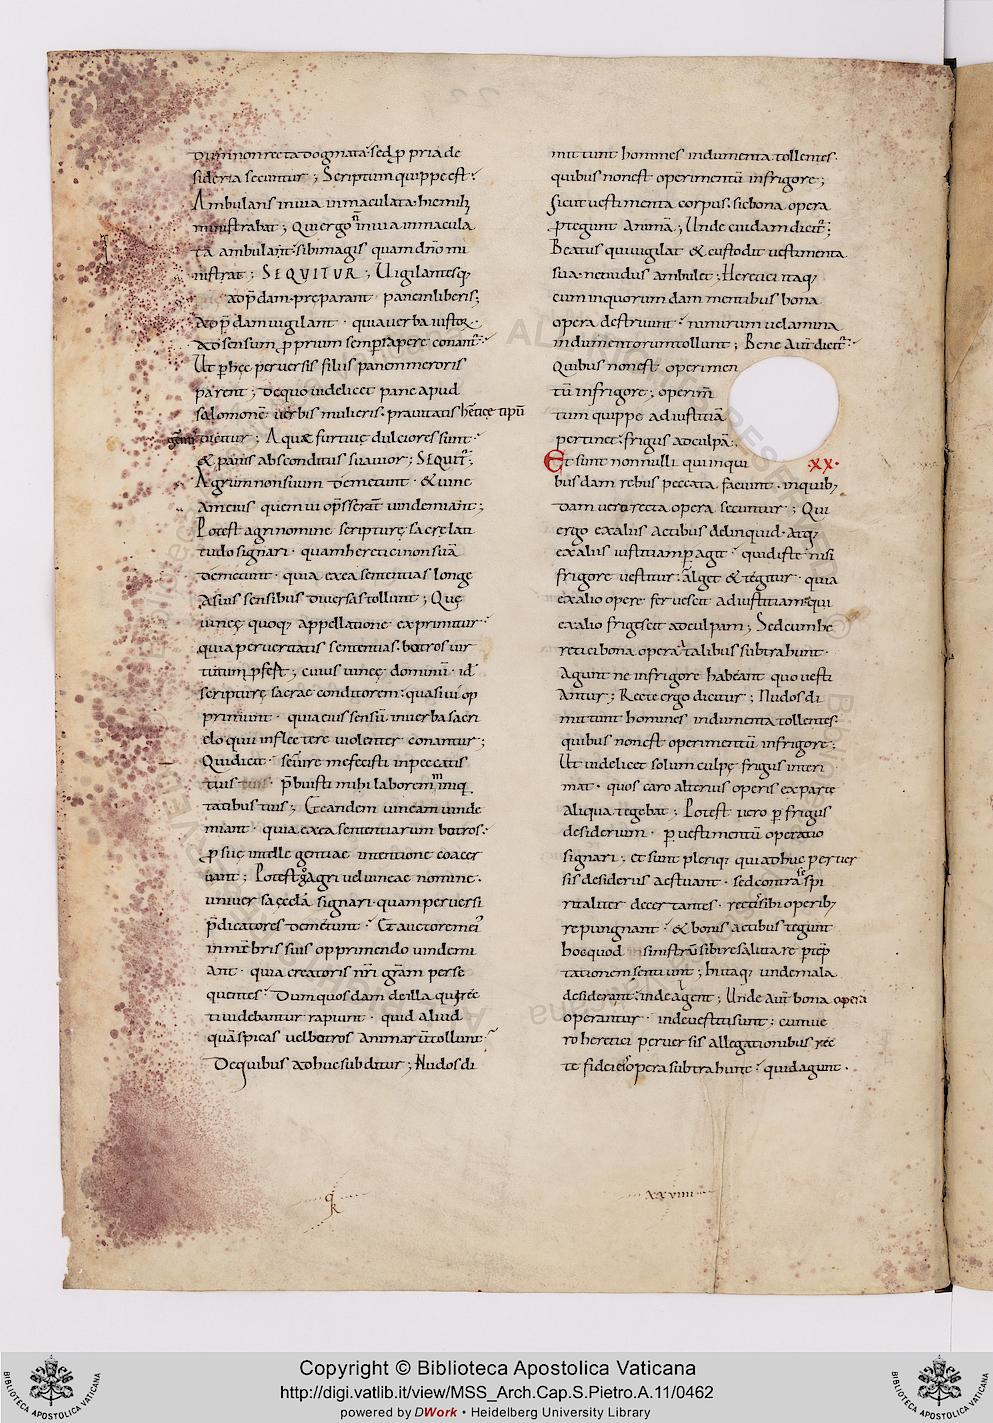 dum non recta dogmata· sed ꝓpria de
sideria secuntur; Scriptum quippe est·
Ambulans in via inmaculata· hic mihi
ministrabat; Qui ergo in via inmacula
ta ambulant· sibi magis quam dño mi
nistrat; SEQUITUR; Uigilantesq;
ad p̄dam· pręparant panem liberis;
Ad p̄dam uigilant· quia uerba iustoꝝ·
Ad sensum ꝓprium semꝑ sapere conant·
Ut ꝑ hęc peruersis filiis panem meroris
parent; de quo uidelicet pane apud
salomonē uerbis mulieris· prauitatis hereticę tipū
dicitur; Aquæ furtiuę dulciores sunt·
& panis absconditus suauior; SEQUIT̄;
Agrum non suum demetunt· & uine
am eius quem ui opp̄sserant uindemiant;
Potest agri nomine scripturę sacrę lati
tudo signari· quam heretici non suā
demetunt· quia ex ea sententias longe
a suis sensibus diuersas tollunt; Quę
uineę quoq; appellatione exprimitur·
quia per ueritatis sententias· botros uir
tutum ꝓfert; cuius uineę dominū· id ÷
scripturę sacrae conditorem· quasi ui op
primunt· quia eius sensū in uerba sacri
eloquii inflectere uiolenter conantur;
Qui dicit· seruire me fecisti in peccatis
tuis· p̄buisti mihi laborem in iniq
tatibus tuis; Et eandem uineam uinde
miant· quia ex ea sententiarum botros·
ꝓ suę intellegentiae intentione coacer
uant; Potest agri uel uineae nomine·
uniuersa ęcclā signari· quam peruersi
p̄dicatores demetunt· Et auctorem ei
in mēbris suis opprimendo uindemi
ant· quia creatoris nr̄i gr̄am perse
quentes· dum quosdam de illa qui recti
uidebantur rapiunt· quid aliud
quā spicas uel botros animarū tollunt·
De quibus adhuc subditur; Nudos di
q̄
k
mittunt homines indumenta tollentes·
quibus non est operimentū in frigore;
Sicut uestimenta corpus· sic bona opera
ꝓtegunt animā; Unde cuidam dicit̄;
Beatus qui uigilat & custodit uestimenta
sua· ne nudus ambulet; Heretici itaq;
cum in quorundam mentibus bona
opera destruunt· nimirum uelamina
indumentorum tollunt; Bene aut̄ dicit̄·
Quibus non est operimen
tū in frigore; operim̄
tum quippe ad iustitiā
pertinet· frigus ad culpā;
Et sunt nonnulli qui in qui ·XX·
busdam rebus peccata faciunt· in quib;
dam uero recta opera secuntur; Qui
ergo ex aliis actibus delinquid· atq;
ex aliis iustitiam ꝑagit· quid iste nisi
frigore uestitur· alget & tegitur· quia
ex alio opere feruescit ad iustitiam· qui
ex alio frigescit ad culpam; Sed cum he
retici bona opera talibus subtrahunt·
Agunt ne in frigore habeant quo uesti
antur; Recte ergo dicitur; Nudos di
mittunt homines indumenta tollentes·
quibus non est operimentū in frigore;
Ut uidelicet solum culpę frigus interi
mat· quos caro alterius operis ex parte
aliqua tegebat; Potest uero ꝑ frigus
desiderium· ꝑ uestimentū operatio
signari· et sunt pleriq; qui adhuc peruer
sis desideriis aestuant· sed contra se spi
ritaliter decertantes· rectis sibi operib;
repungnant· & bonis actibus tegunt
hoc quod in sinistrū sibi resalutare ꝑ tēp
tationem sentiunt; hi itaq; unde mala
desiderant· inde algent; Unde aut̄ bona opera
operantur· inde uestiti sunt; cum ue
ro heretici peruersis allegationibus rec
te fidei opera subtrahunt· quid agunt·
xxviiii
Copyright © Biblioteca Apostolica Vaticana
http://digi.vatlib.it/view/MSS_Arch.Cap.S.Pietro.A.11/0462
powered by DWork • Heidelberg University Library
BIBLIOTECA APOSTOLICA VATICANA
BIBLIOTECA APOSTOLICA VATICANA